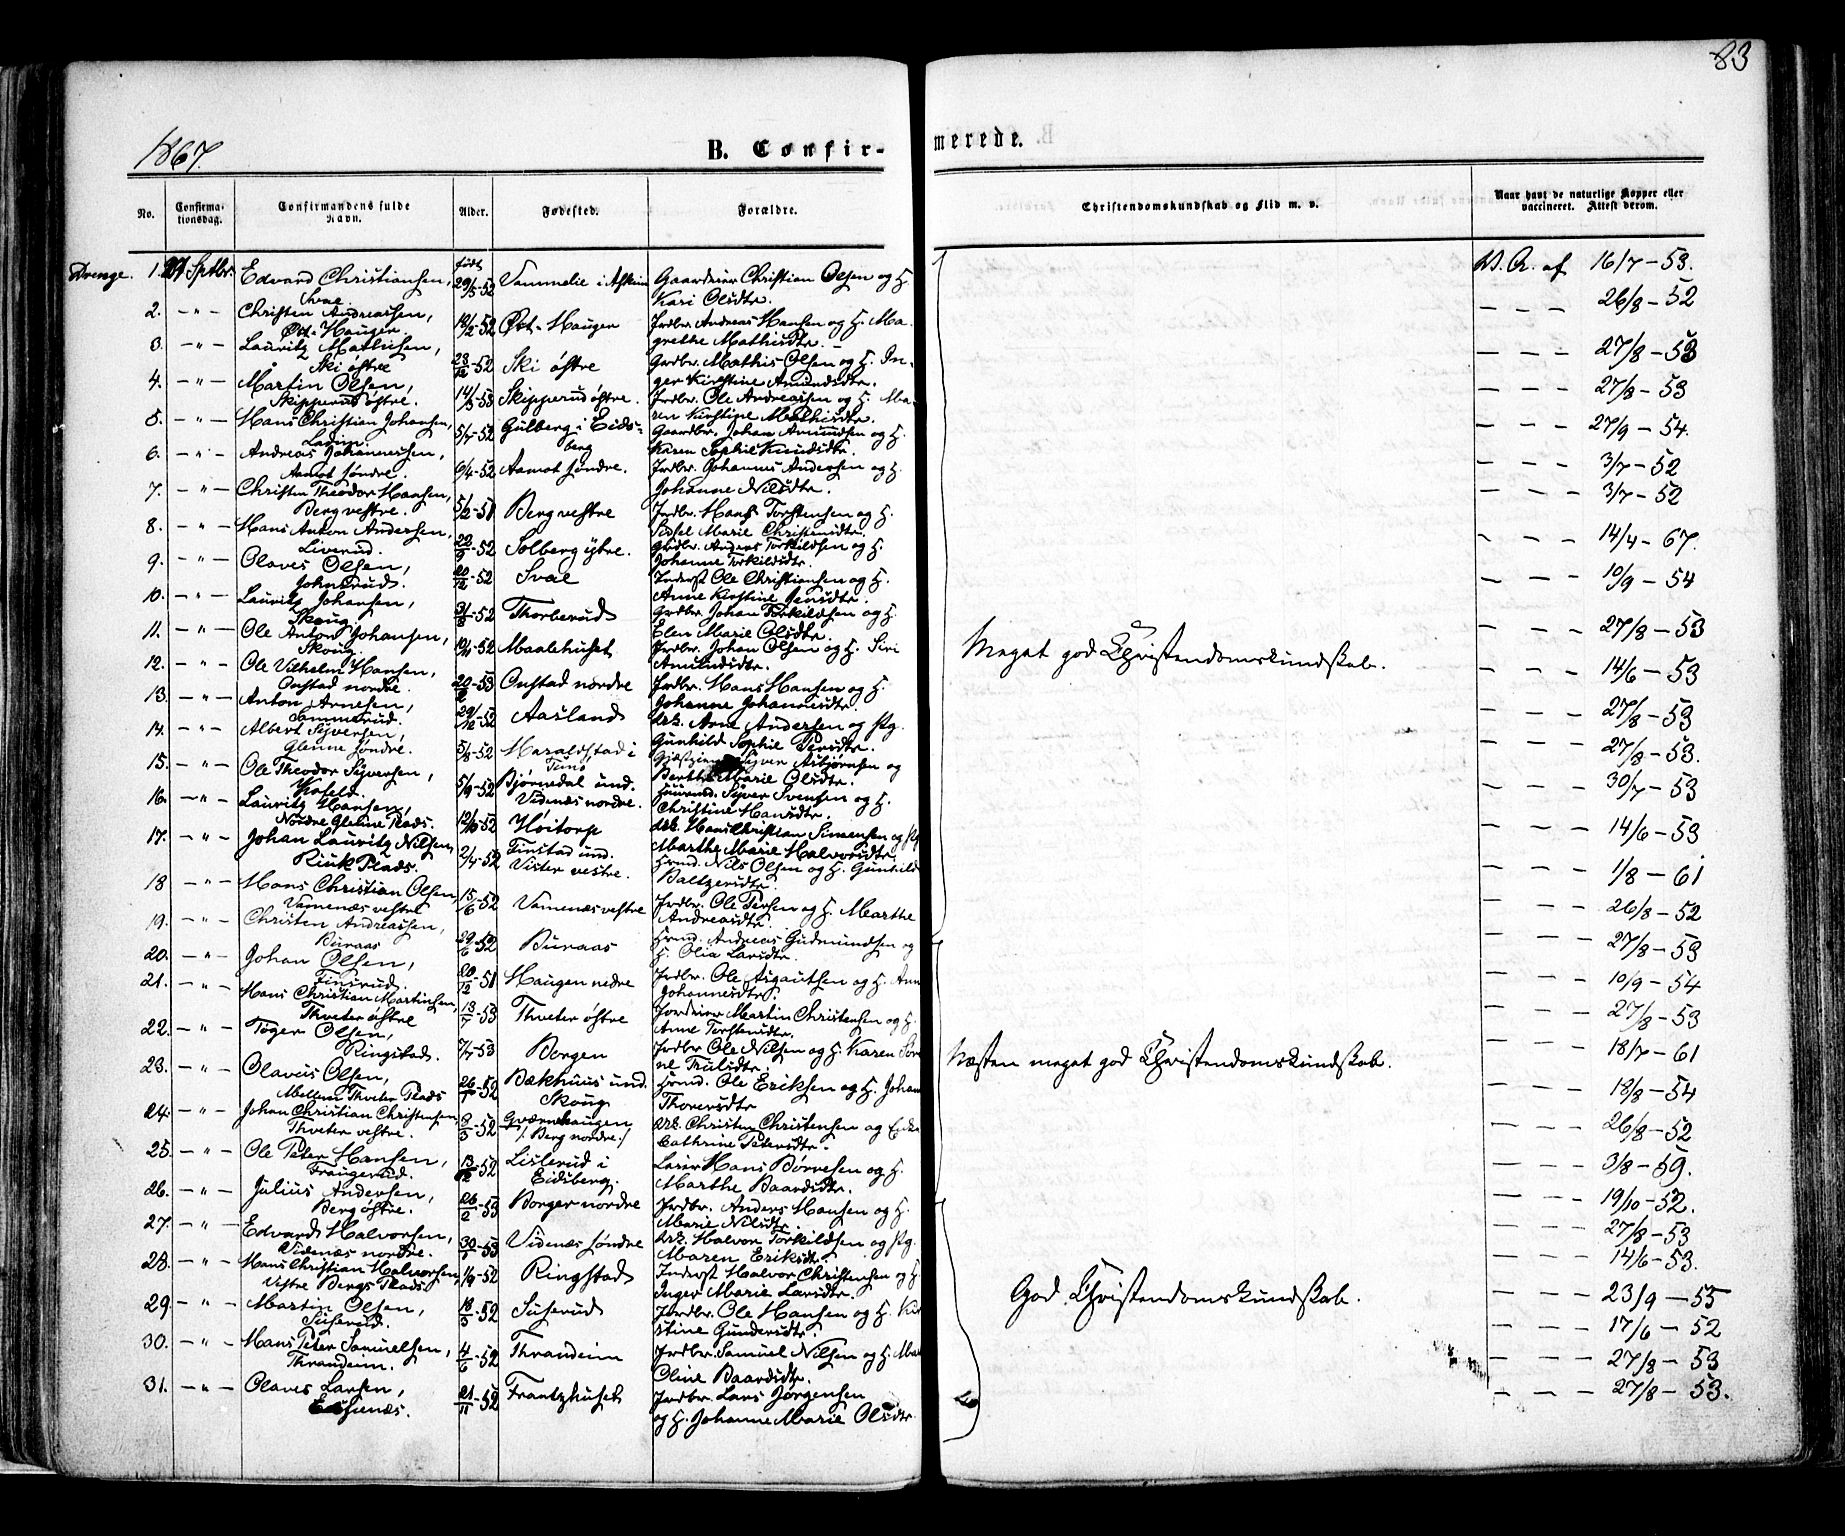 83
1867.
B. Confir-
merede.
No.
Confirma-
tionsdag.
Confirmandens fulde
Navn.
Alder.
Fødested.
Forældre.
Christendomskundskab og Flid m. v.
Naar havt de naturlige Kopper eller
vaccineret. Attest derom.
Drenge. 1. Sptbr. Edvard Christiansen, født 29/5-52 Gaardeier Christian Olsen og H. V. A. af 16/7-53.
Svae. Kari Olsdtr.
2. -"- Christen Andreassen, 18/2-52 Øst-Hauger Jrdbr. Andreas Hansen og H. Ma- - - - 26/8-52
Øst-Hauger. grethe Mathisdtr.
3. -"- Lauritz Mathisen, -52 Ski østre Grdbr. Mathis Olsen og H. In- - - - 27/8-53
Ski østre ger Kirstine Amundsdtr.
4. -"- Martin Olsen, 14/3-53 Skipperud østre. Jrdbr. Ole Andreassen og H. Ma- - - - 27/8-53
Skipperud østre. ren Kirstine Mathisdtr.
5. -"- Hans Christian Johansen, 5/7-52 Gulberg i Eids- Gaardbr. Johan Amundsen og H. - - - 27/9-54.
berg Karen Sophie Knudsdtr.
6. -"- Andreas Johannessen, 6/4-52 Aamot søndre. Jrdbr. Johannes Andersen og H. - - - 3/7-52
Aamot søndre. Johanne Nilsdtr.
7. -"- Christen Theodor Hansen, 5/12-51 Berg vestre Jrdbr. Hans Torstensen og H. - - - 3/7-52
Berg vestre. Sidsel Marie Christensdtr.
8. -"- Hans Anton Andersen, 22/9-52 Solberg ytre. Grdbr. Anders Torkildsen og H. - - - 14/4-67.
Liverud. Johanne Torkildsdtr.
9. -"- Olaves Olsen, 20/12-52 Svae Inderst Ole Christiansen og H. - - - 10/9-54
Johnsrud. Anne Kirstine Jensdtr.
10. -"- Lauritz Johansen, -52 Thorberud Grdbr. Johan Torkildsen og H. - - - 27/8-53
Skoug. Elen Marie Olsdtr.
11. -"- Ole Anton Johansen, -52 Maalehuset Jrdbr. Johan Olsen og H. Siri - - - 14/6-53
Skoug. Amundsdtr.
Meget god Christendomskundskab.
12. -"- Ole Vilhelm Hansen, -53 Onstad nordre Jrdbr. Hans Hansen og H. - - - 27/8-53
Onstad nordre. Johanne Johannesdtr.
13. -"- Anton Arnesen, 29/12-52 Aasland Ark. Arne Andersen og Pg. - - - 27/8-53.
Sommerud. Gunhild Sophie Persdtr.
14. -"- Albert Syversen, 5/8-52 Haraldstad i Syver Asbjørnsen og - - - 30/7-53
Glenne søndre. Berthe Marie Olsdtr.
15. -"- Ole Theodor Syversen, 5/9-52 Bjørnedal und. Syver Svensen og H. - - - 14/6-53
Videnæs nordre. Christine Hansdtr.
16. -"- Lauritz Hansen, -52 Høitorp Ark. Hans Christian Simensen og Pg. - - - 1/8-61
Nordre Glenne Plads. Marthe Marie Halvorsdtr.
17. -"- Johan Lauritz Nilsen, 2/4-52 Finstad und. Hrmd. Nils Olsen og H. Gunhild - - - 26/8-52
Plads. Vister vestre. Baltzersdtr.
18 -"- Hans Christian Olsen, 15/6-52 Vamenæs vestre Jrdbr. Ole Persen og H. Marthe - - - 27/8-53
Vamenæs vestre Andreasdtr.
19. Christen Andreassen, 29/6-52 Buraas Hrmd. Andreas Gudmundsen og - - - 10/9-54
Buraas H. Olia Larsdtr.
20. -"- Johan Olsen, 20/12-51 Haugen nedre Jrdbr. Ole Asgautsen og H. - - - 27/8-53
Finsrud. Johannesdtr.
21. -"- Hans Christian Martinsen, -53 Thveter østre Jordeier Martin Christensen og H. - - - 18/7-61
Thveter østre Anne Torstensdtr.
22. -"- Tøger Olsen, 7/7-53 Borgen Jrdbr. Ole Nilsen og H. Karen - - - 18/8-54
Ringstad. ne Trulsdtr.
Næsten meget god Christendomskundskab.
23. -"- Olaves Olsen, -52 Bækhuus und. Hrmd. Ole Eriksen og H. - - - 26/8-52
Mellem Thveter Plads Skoug Thoresdtr
24. -"- Johan Christian Christensen, -52 Ark. Christen Christensen og - - - 3/8-59.
Thveter vestre. /:Berg nordre:/ Cathrine Pedersdtr.
25. -"- Ole Peter Hansen, -52 Lislerud i Hans Børresen og H. - - - 19/10-52.
Fraugerud. Eidsberg. Marthe Baardsdtr.
26. -"- Julius Andersen, 26/2-53 Borger nordre Jrdbr. Anders Hansen og H. - - - 27/8-53
Berg østre. Marie Nilsdtr.
27. -"- Edvard Halvorsen, -53 Videnæs søndre Ark. Halvor Torkildsen og Pg. - - - 14/6-53.
Videnæs nordre. Maren Eriksdtr.
28. -"- Hans Christian Halvorsen, 1/9-52 Ringstad Inderst Halvor Christensen og H. - - - 23/9-55
Vestre Bergs Plads Inger Marie Larsdtr.
29. -"- Martin Olsen, -52 Suserud Jrdbr. Ole Hansen og H. - - - 17/6-52
Suserud. stine Gundersdtr.
God Christendomskundskab.
30. -"- Hans Peter Samuelsen, 4/6-52 Thrandeim Jrdbr. Samuel Nilsen og H. - - - 27/8-53
Thrandeim. Oline Baardsdtr.
31. -"- Olaves Larsen, 21/11-52 Frantzhuset Jrdbr. Lars Jørgensen - - - 27/8-53.
og H. Johanne Marie Olsdtr.